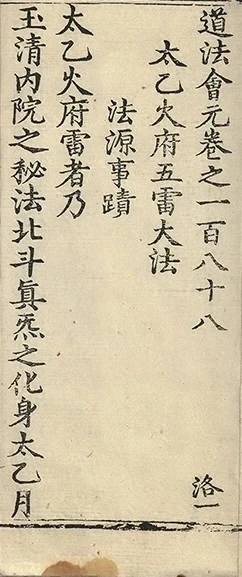 道法會元卷之一百八十八
洛一
太乙火府五雷大法
法源事蹟
太乙火府雷者乃
玉清内院之秘法北斗眞炁之化身太乙月